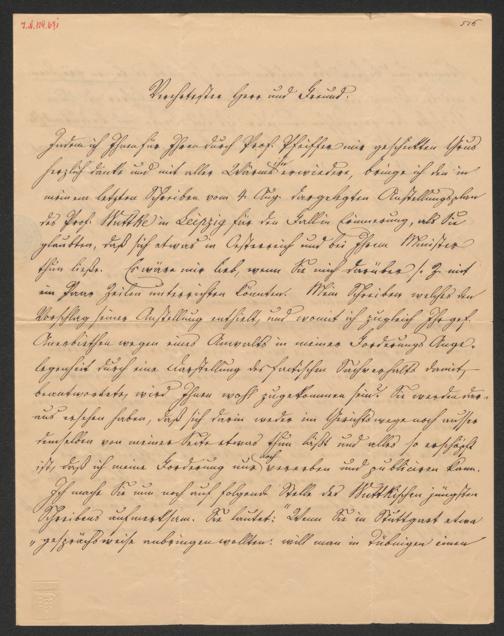 I.N. 114.691
526
Verehrtester Herr und Freund.
Indem ich Ihnen für Ihren durch Prof. Pfeiffer mir geschickten Gruss
herzlich danke und mit aller Wärme ihn erwiedere, bringe ich den in
meinem letzten Schreiben vom 4. Aug. dargelegten Anstellungsplan
des Prof. Wuttke in Leipzig für den Fall in Erinnerung, als Sie
glaubten, daß sich etwas in Oesterreich und bei Ihrem Minister
thun ließe. Es wäre mir lieb, wenn Sie mich darüber s. Z. mit
ein Paar Zeilen unterrichten könnten. Mein Schreiben welches den
Vorschlag seiner Anstellung enthielt, und womit ich zugleich Ihr gef.
Anerbiethen wegen eines Anwalts in meiner Forderungs Ange-
legenheit durch eine Darstellung des factischen Sachverhalts damit
beantwortete, wird Ihnen wohl zugekommen sein? Sie werden dar-
aus ersehen haben, daß sich darin weder im Gerichtswege noch ausser
demselben von meiner Seite etwas thun läßt und alles so erschöpft
ist, daß ich meine Forderung nur noch vererben und publiciren kann.
Ich mache Sie nun noch auf folgende Stelle des Wuttkischen jüngsten
Schreibens aufmerksam. Sie lautet: "Wenn Sie in Stuttgart etwa
„ gesprächsweise anbringen wollten: will man in Tübingen einen